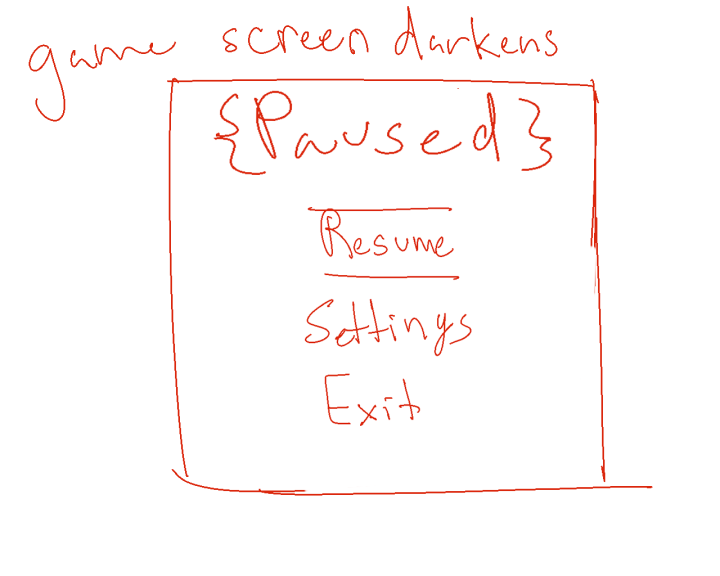 game screen darkens
{Paused}
Resume
Settings
Exit